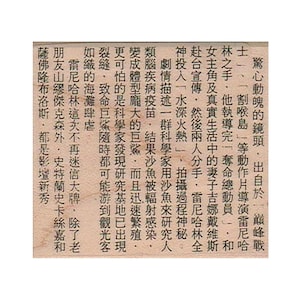 驚心動魄的鏡頭，出自於﹁巔峰戰
士﹂、﹁割喉島﹂等動作片導演雷尼哈
林之手，他執導完﹁奪命總動員﹂，和
女主角及真實生活中的妻子吉娜戴維斯
赴台宣傳，然後兩人分手，雷尼哈林全
神投入﹁水深火熱﹂，拍攝過程神秘。
劇情描述一群科學家用沙魚來研究人
類腦疾病疫苗，結果沙魚被輻射感染，
變成體型龐大的巨鯊，而且迅速繁殖，
更可怕的是科學家發現研究基地已出現
裂縫，致命巨鯊隨時都可能游到觀光客
如織的海灘肆虐。
雷尼哈林這次不再迷信大牌，除了老
朋友山繆傑克森外，史特蘭史卡絲嘉和
薩佛隆布洛斯，都是影壇新秀